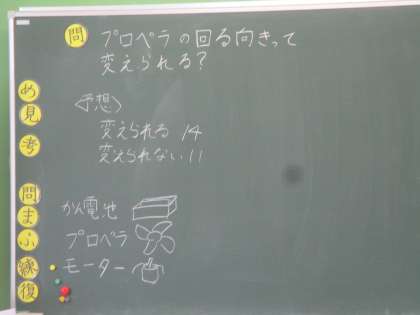 問 プロペラの回る向きって
変えられる?
<予想>
変えられる 14
変えられない 11
かん電池
プロペラ
モーター
め
見
考
問
ま
ふ
練
復